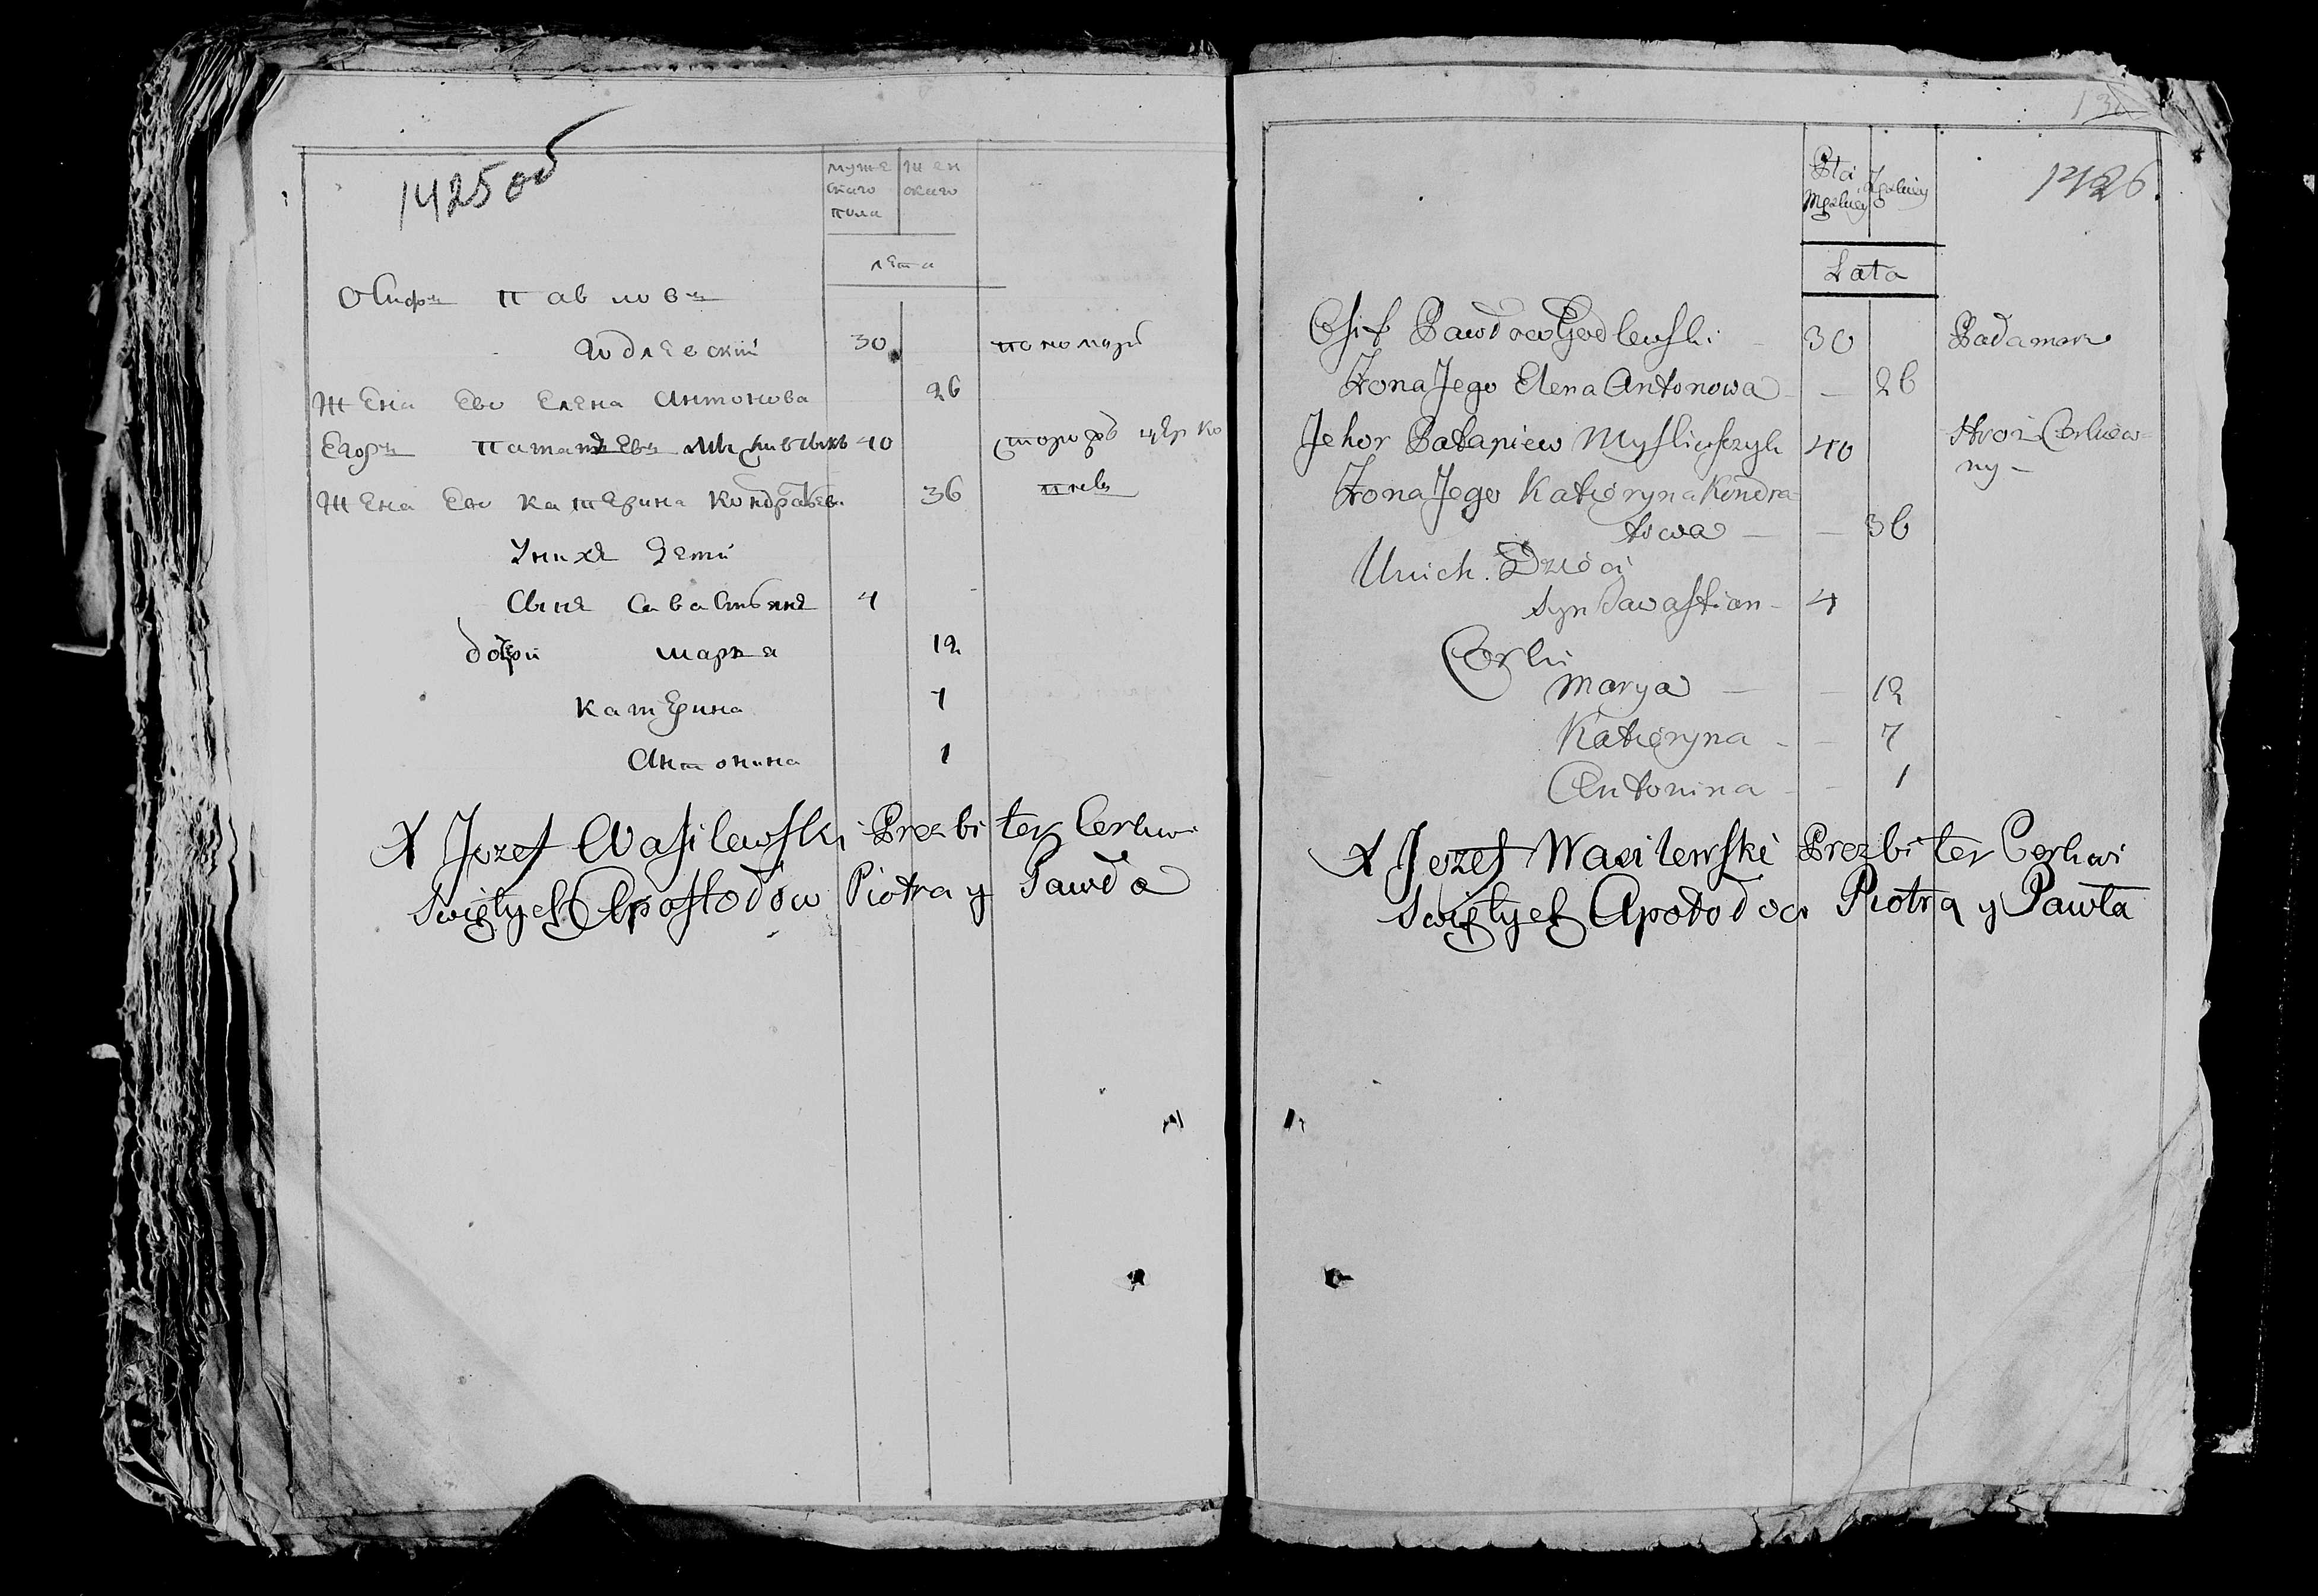 1425 об
муже ского пола
жен ского
лета
Осифъ Павловъ
Годлеский 30 пономарь
Жена Ево Елена Антонова 26
Егоръ 40 сторожъ церко
Жена Ево Катерина Кондратьева 36 вны
Уних Дети
Сынъ Савастьянъ 4
дочери Марья 12
Катерина 7
Антонина 1
X Jozef Wasilewski Prezbiter Cerkwi
Swiętych Apostołów Piotra y Pawła
1426.
Płci Męzkiey Żeńskiey
Lata
Osif Pawłow Godlewski 30 Pałamarz
Żona Jego Elena Antonowa 26
Jehor Patapiew Mysliwszyk 40 Stroż Cerkiew-
ny
Żona Jego Katieryna Kondra-
towa 36
Unich Dzieci
Syn Sawastian 4
Corki
Marya 12
Katieryna 7
Antonina 1
X Jozef Wasilewski Prezbiter Cerkwi
Swiętych Apotołow Piotra y Pawła